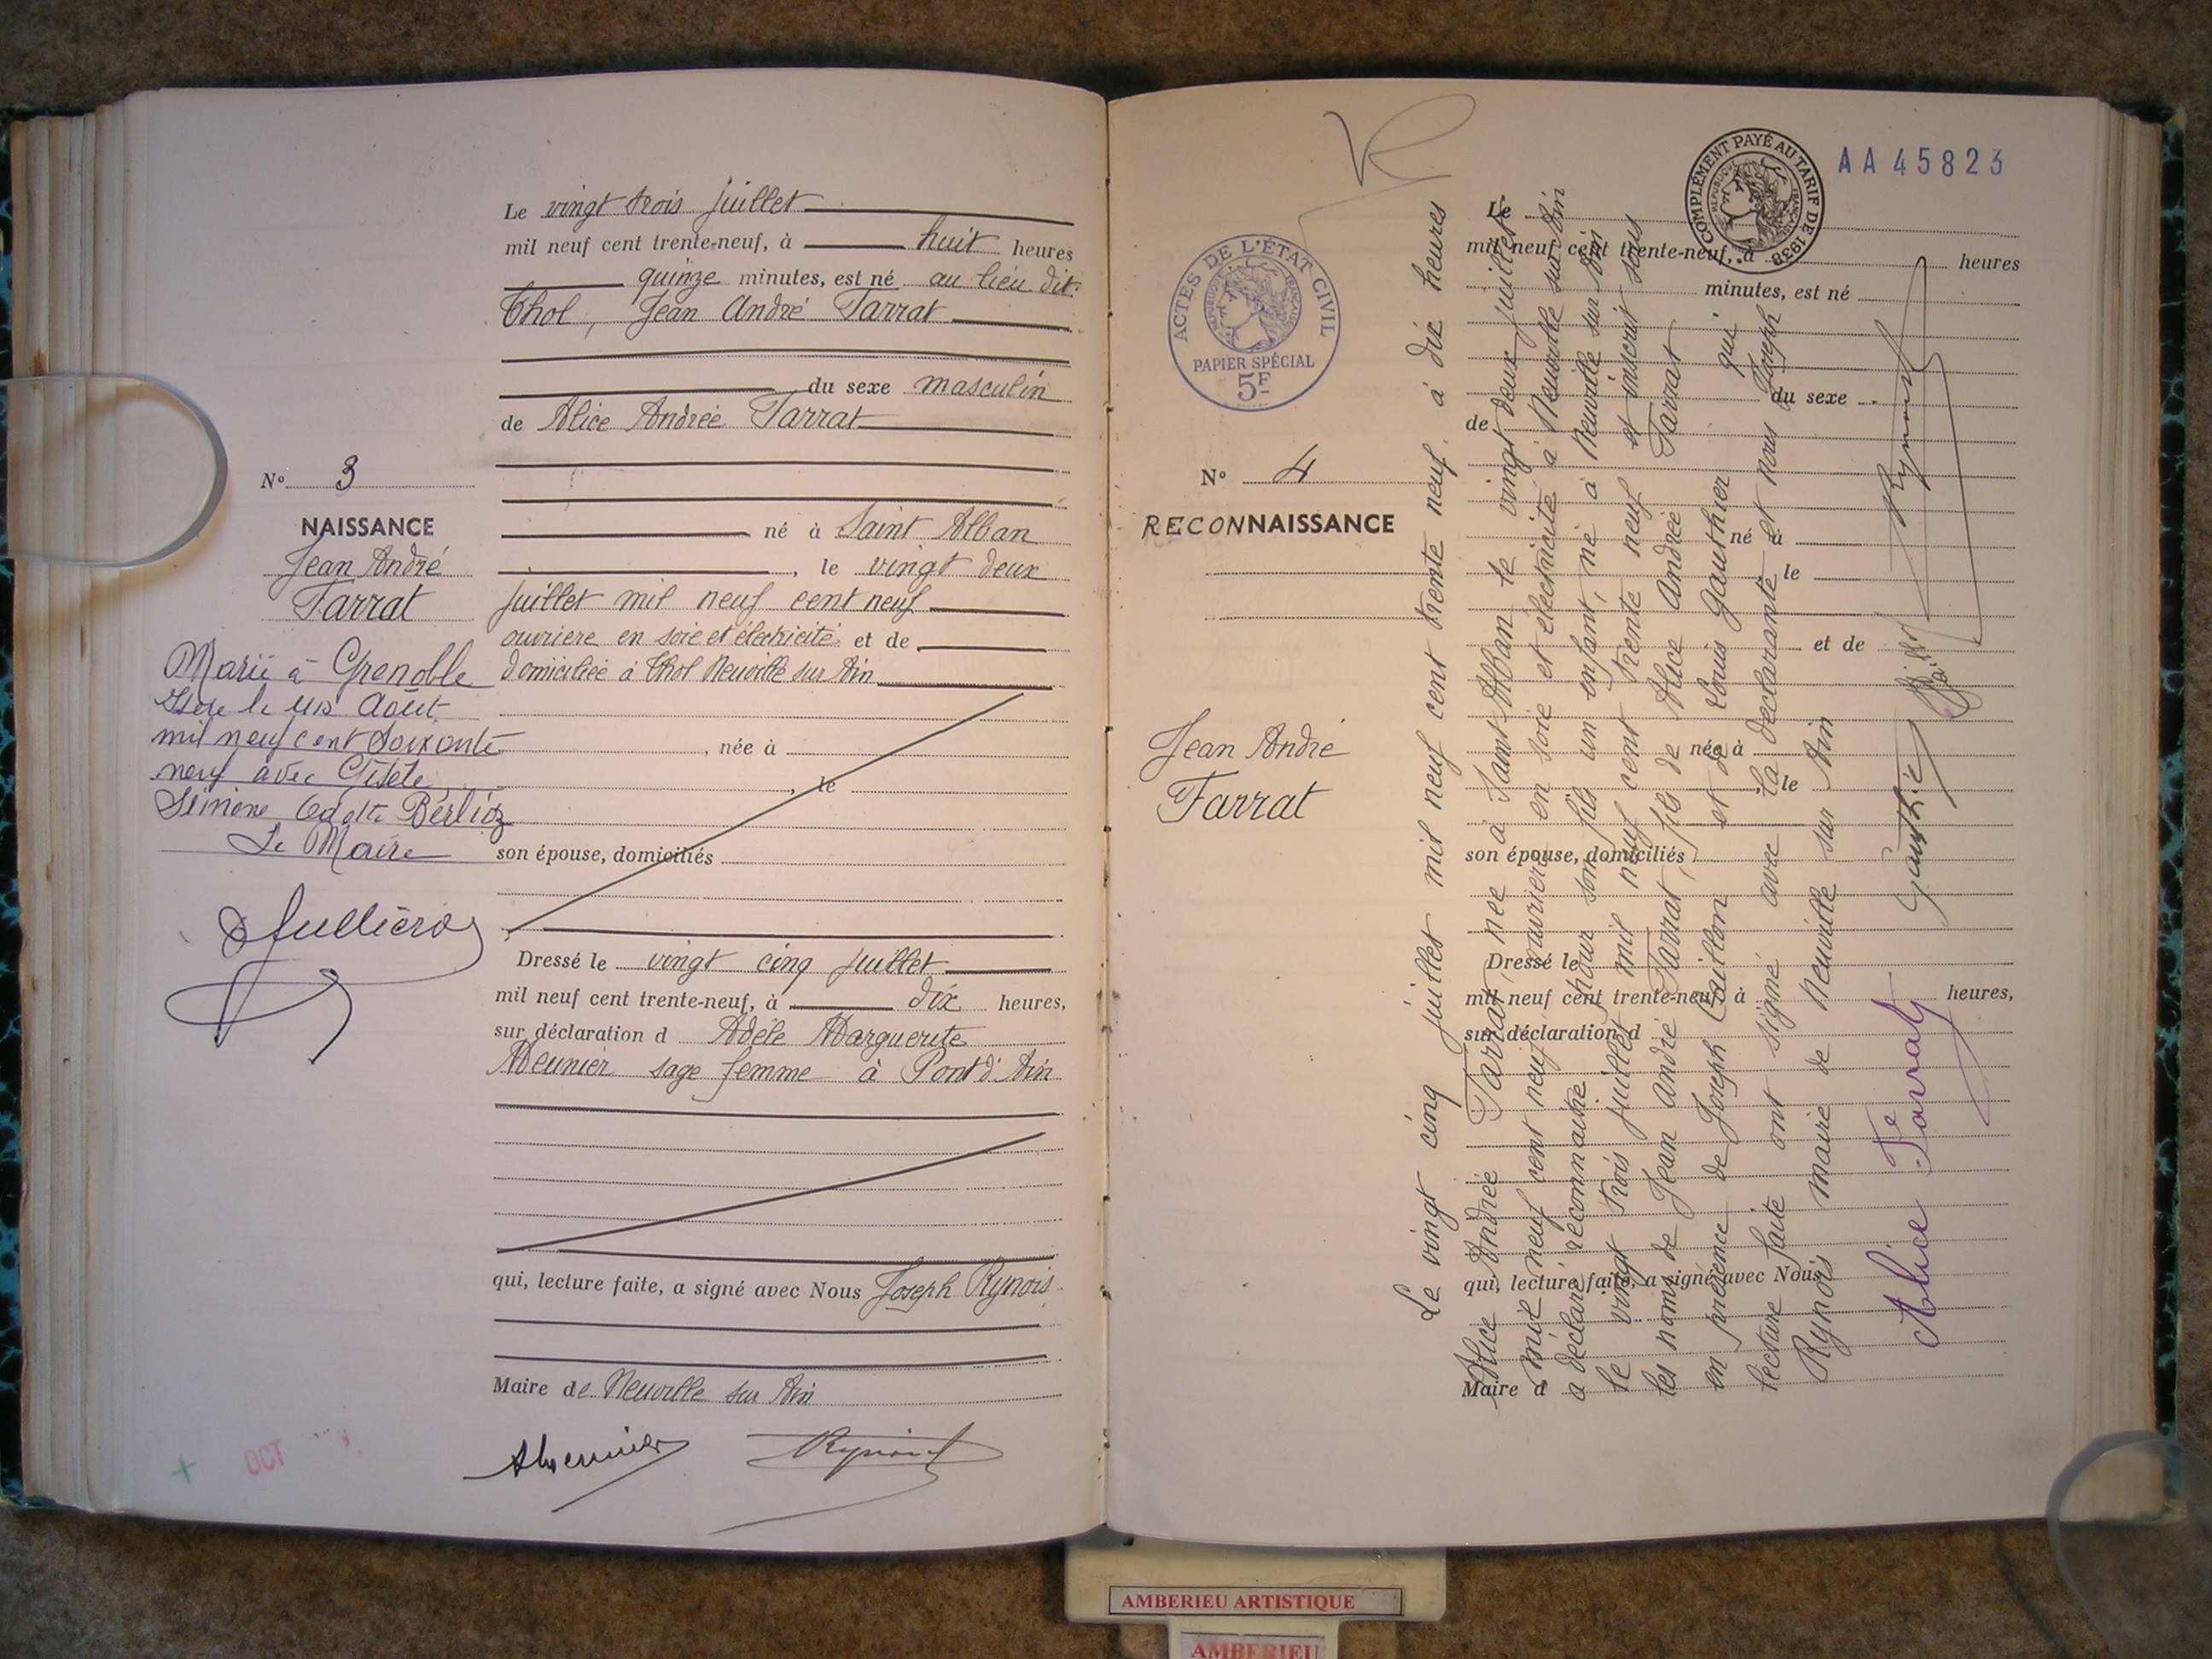 Le vingt trois juillet
mil neuf cent trente-neuf, à huit heures
quinze minutes, est né au lieu dit
Thol, Jean André Tarrat
du sexe masculin
de Alice Andrée Tarrat
N° 3
né à Saint Alban
NAISSANCE
, le vingt deux
Jean André
Tarrat
juillet mil neuf cent neuf
ouvrière en soie et électricité et de
domiciliée à Thol Neuville sur Ain
Marié à Grenoble
Isère le
Août
mil neuf cent soixante
neuf avec Gisèle
Simone Berlioz
Le Maire
, née à
, le
son épouse, domiciliés
Dressé le vingt cinq juillet
mil neuf cent trente-neuf, à dix heures,
sur déclaration d Adèle Marguerite
Meunier sage femme à Pont d'Ain
qui, lecture faite, a signé avec Nous Joseph Rynois
Maire de Neuville sur Ain
AMeunier
OCT
ACTES DE L'ÉTAT CIVIL
PAPIER SPÉCIAL
5F
COMPLÉMENT PAYÉ AU TARIF DE 1938
AA 45823
N° 4
RECONNAISSANCE
Jean André
Tarrat
Le
mil neuf cent trente-neuf, à heures
minutes, est né
du sexe
de
né à
le
et de
née à
le
son épouse, domiciliés
Dressé le
mil neuf cent trente-neuf, à heures,
sur déclaration d
qui, lecture faite, a signé avec Nous
Maire d
Le vingt cinq juillet mil neuf cent trente neuf à dix heures
Alice Andrée Tarrat, née à Saint Alban le vingt deux juillet
mil neuf cent neuf, ouvrière en soie et électricité à Neuville sur Ain
a déclaré reconnaitre pour son fils un enfant, né à Neuville sur Ain
le vingt trois juillet mil neuf cent trente neuf et inscrit sous
les noms de Jean André Tarrat, fils de Alice Andrée Tarrat
en présence de Joseph Caillon et de Louis Gauthier qui
lecture faite ont signé avec la déclarante et nous Joseph
Rynois maire de Neuville sur Ain
Alice Tarrat
Gauthier
AMBERIEU ARTISTIQUE
AMBERIEU